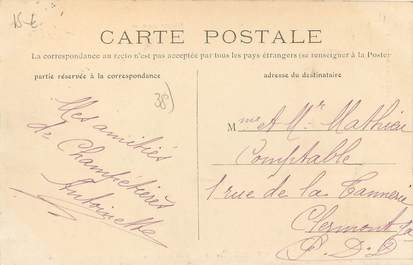 15 €
CARTE POSTALE
La correspondance au recto n'est pas acceptée par tous les pays étrangers (se renseigner à la Poste)
partie réservée à la correspondance
adresse du destinataire
38)
Mes amitiés
de Champétières
Antoinette
Mme et Mr Mathieu
Comptable
1 rue de la Tannerie
Clermont
P. D. D